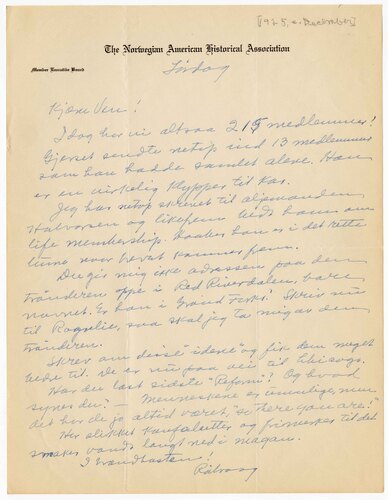 [1925, c. December]
The Norwegian American Historical Association
Member Executive Board
Lördag
Kjære Ven!
Idag har vi altsaa 215 medlemmer!
Gjerset sendte netop ind 13 medlemmer
som han hadde samlet alene. Han
er en virkelig klypper til kar.
Jeg har netop skrevet til
Halvorsen og likefrem bedt ham om
life membership. Haaber han er i det rette
lune naar brevet kommer frem.
Du gir mig ikke adressen paa den
trönderen oppe i Red Riverdalen, bare
navnet. Er han i Grand Forks? Skriv nu
til Rognlie, saa skal jeg ta mig av den
trönderen.
Skriv om disse "ideene" og fik dem meget
bedre til. De er nu paa vei til
Har du læst sidste "Reform"? Og hvad
synes du? — Menneskene er umulige, men
det har de jo altid været, "so there you are!"
Har slikket konfolutter og frimerker til det
smaker vondt langt ned i magan.
I
Rölvaag